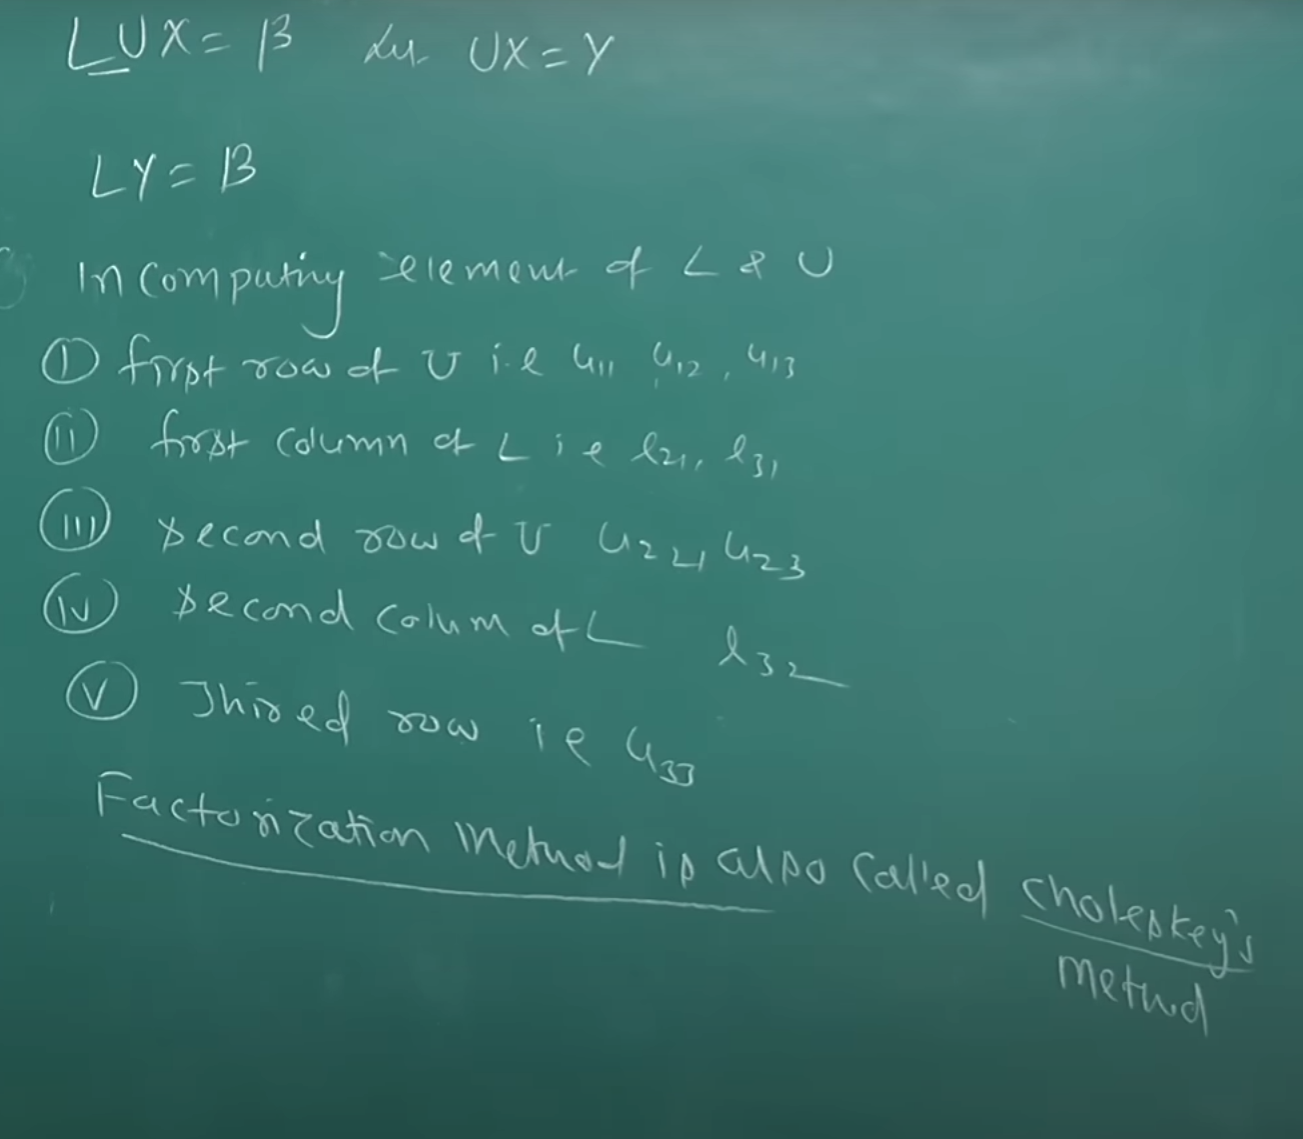 LUX = B Let UX = Y
LY = B
In Computing element of L & U
(I) first row of U i.e u11 u12, u13
(II) first column of L i e l21, l31
(III) second row of U u22, u23
(IV) second colum of L l32
(V) Thired row ie u33
Factorization Method is also called Choleskey's
Method